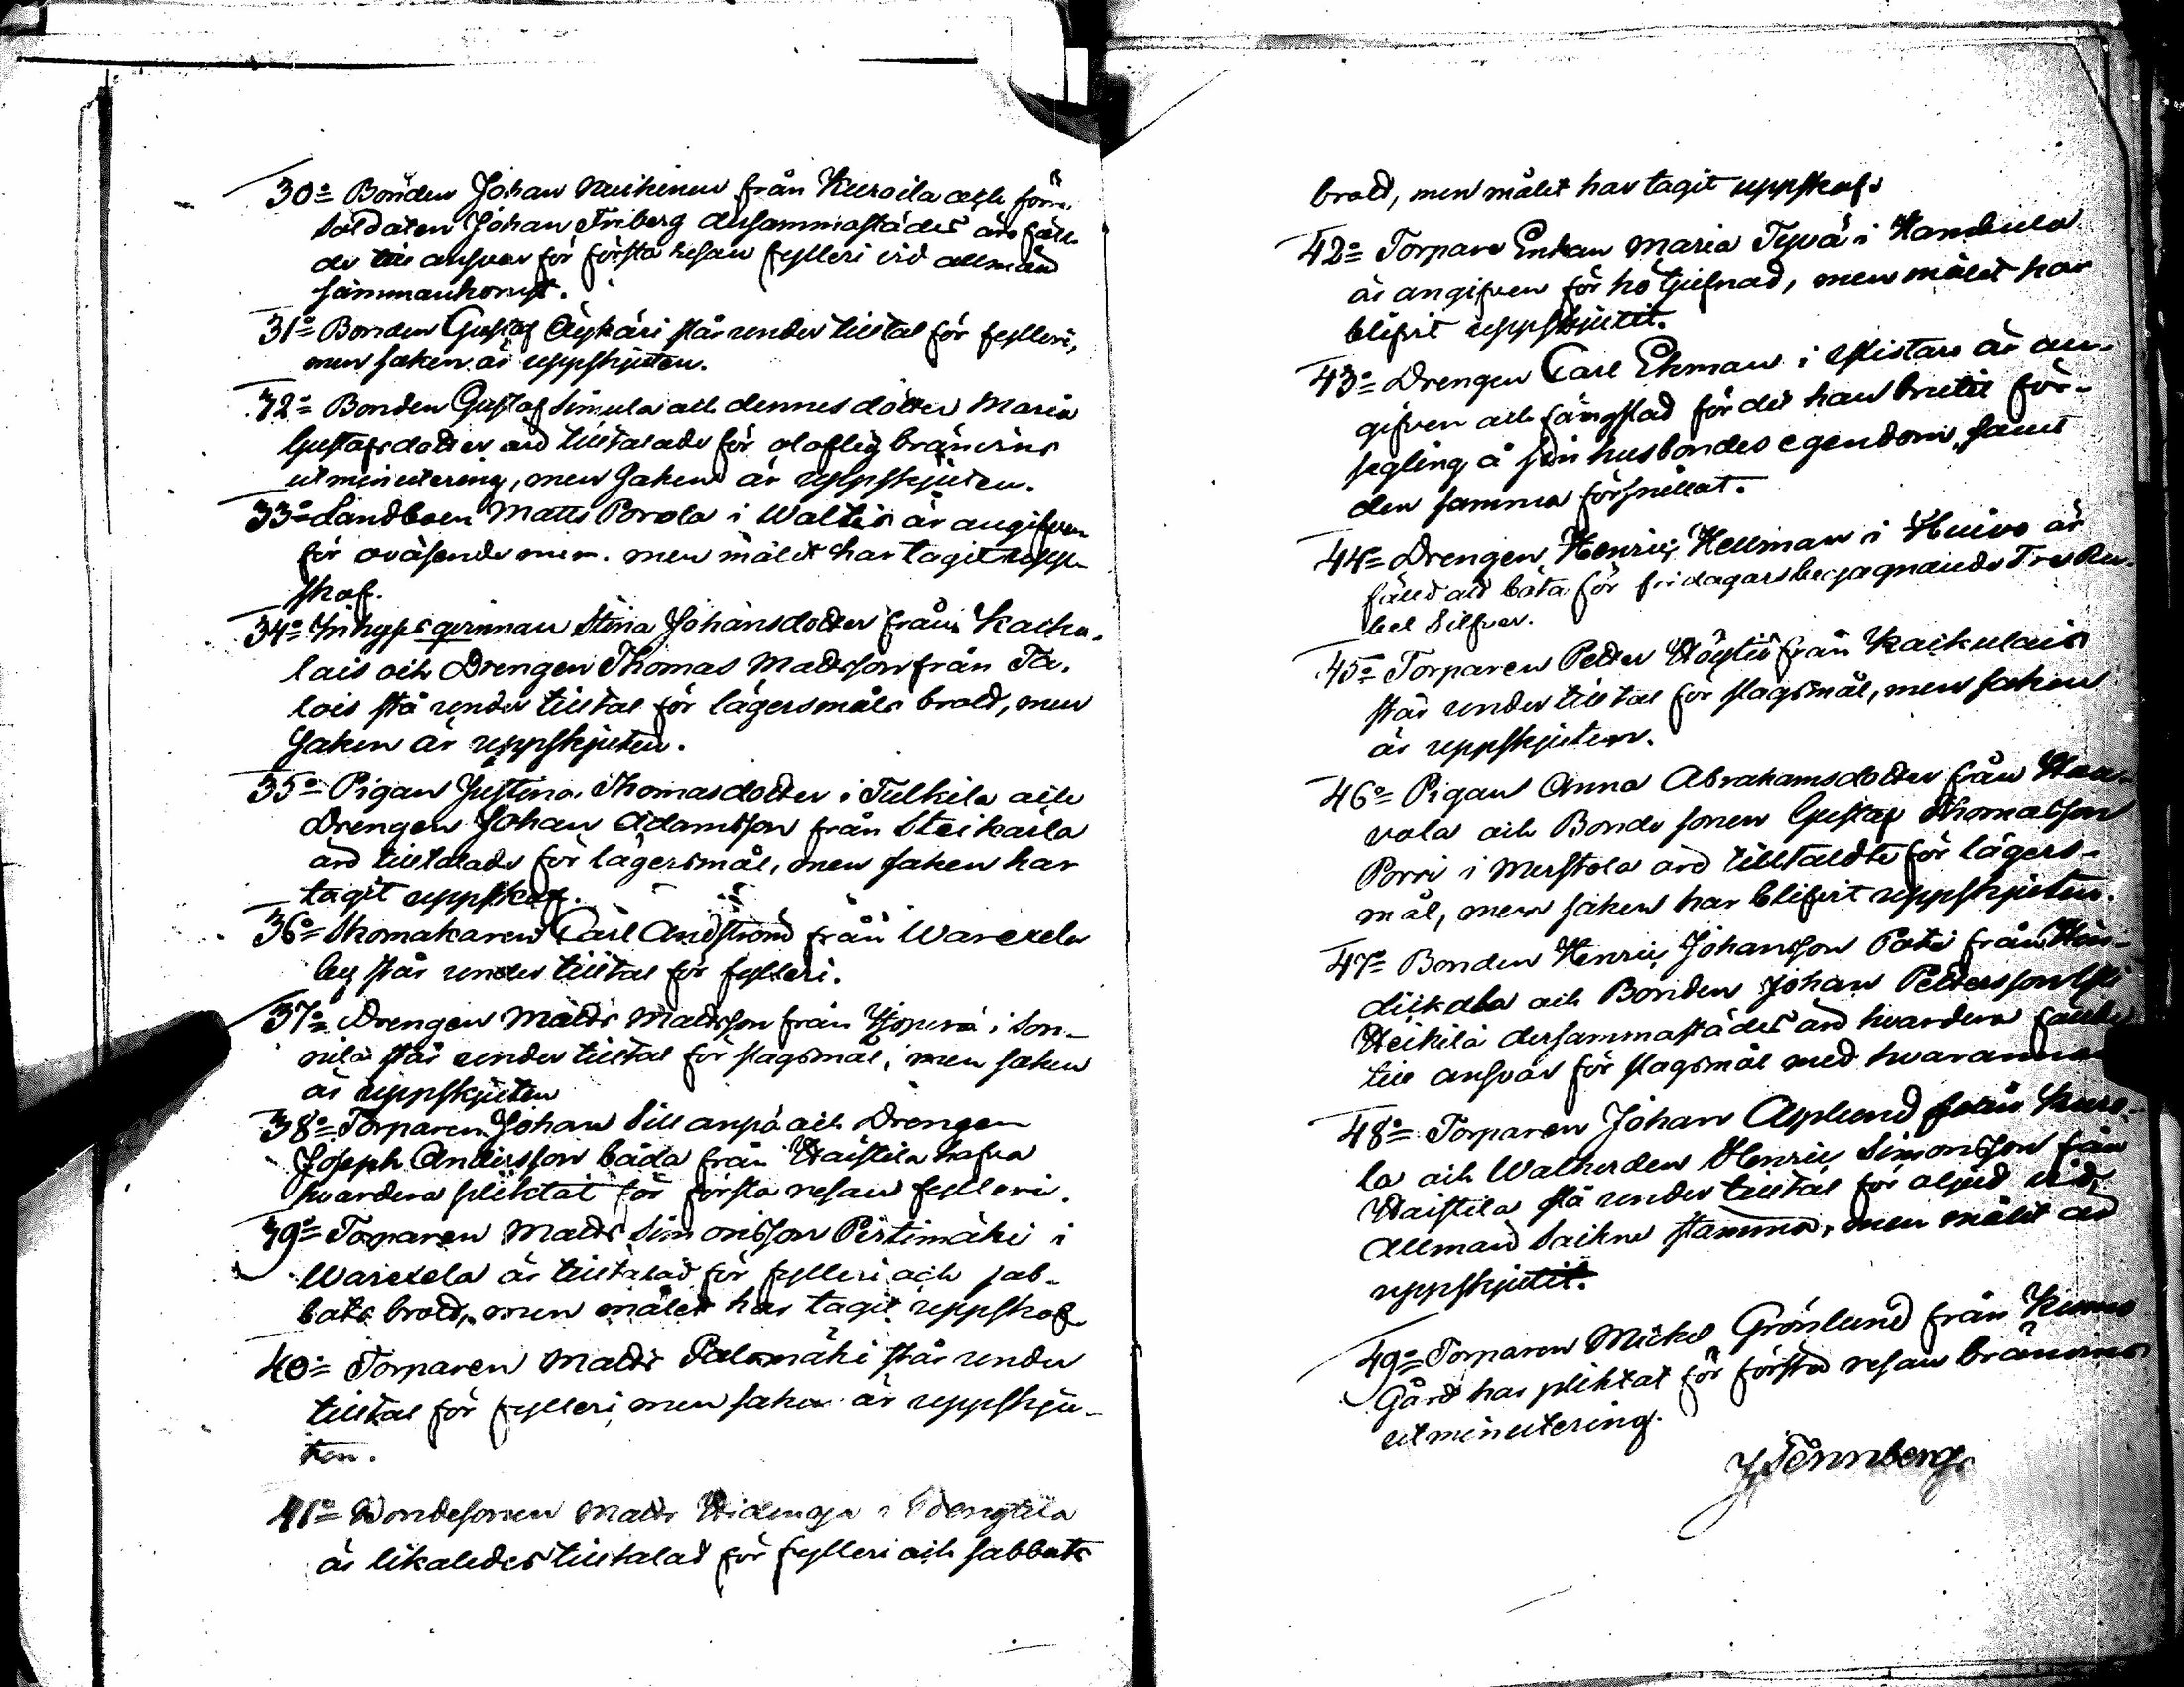 30o Bonden Johan från Kuroila och förra
Soldaten Johan Friberg dersammastädes äro fäll-
de till ansvar för första resan fylleri vid allmän
sammankomst.
31o Bonden Gustaf Äykäri står under tilltal för fylleri,
men saken är uppskjuten.
32o Bonden Gustaf Simula och dennes dotter Maria
Gustafsdotter äro tilltalade för oloflig bränvins
utminutering, men saken är uppskjuten.
33o Landboen Matts Porola i Waltis är angifven
för oväsende m.m. men målet har tagit upp-
skof.
34o Inhyses qvinnan Stina Johansdotter från Kaiku-
lais och Drengen Thomas Mattsson från Ta-
lois stå under tilltal för lägersmåls brott, men
saken är uppskjuten.
35o Pigan Justina Thomasdotter i Tulkila och
Drengen Johan Adamsson från Steikarla
äro tilltalade för lägersmål, men saken har
tagit uppskof.
36o Skomakaren Carl Andström från Warexela
by står under tilltal för fylleri.
37o Drengen Matts Mattsson från i Son-
nila står under tilltal för slagsmål, men saken
är uppskjuten
38o Torparen Johan Sillanpä och Drengen
Joseph Andersson båda från Haistila hafva
hvardera pliktat för första resan fylleri.
39o Torparen Matts Simonsson Pirtimäki i
Warexela är tilltalad för fylleri och sab-
bats brott, men målet har tagit uppskof
40o Torparen Matts Palomäki står under
tilltal för fylleri, men saken är uppskju-
ten.
41o Bondesonen Matts i
är likaledes tilltalad för fylleri och sabbats
brott, men målet har tagit uppskof.
42o Torpare Enkan Maria Tyvä i
är angifven för hö tjufnad, men målet har
blifvit uppskjutit.
43o Drengen Carl Ekman i är an-
gifven och fängslad för det han brutit för-
segling å sin husbondes egendom, samt
den samma förspillat.
44o Drengen Henric Hellman i Huivo är
fälld att böta för fridagars begagnande Tre Ru-
bel Silfver.
45o Torparen Petter från Kaikulais
står under tilltal för slagsmål, men saken
är uppskjuten.
46o Pigan Anna Abrahamsdotter från Haa-
vola och Bonde sonen Gustaf Thomasson
Porri i Merstola äro tilltaldte för lägers-
mål, men saken har blifvit uppskjuten.
47o Bonden Henric Johansson från
och Bonden Johan Pettersson
Heikilä dersammastädes äro hvardera fällde
till ansvar för slagsmål med hvarannan
48o Torparen Johan Asplund från Kuro-
la och Walherden Henric Simonsson från
Haistila stå under tilltal för oljud vid
Allmän Sockne stämma, men målet är
uppskjutit.
49o Torparen Mickel Grönlund från Kumo
Gård har pliktat för första resan bränvins
utminutering.